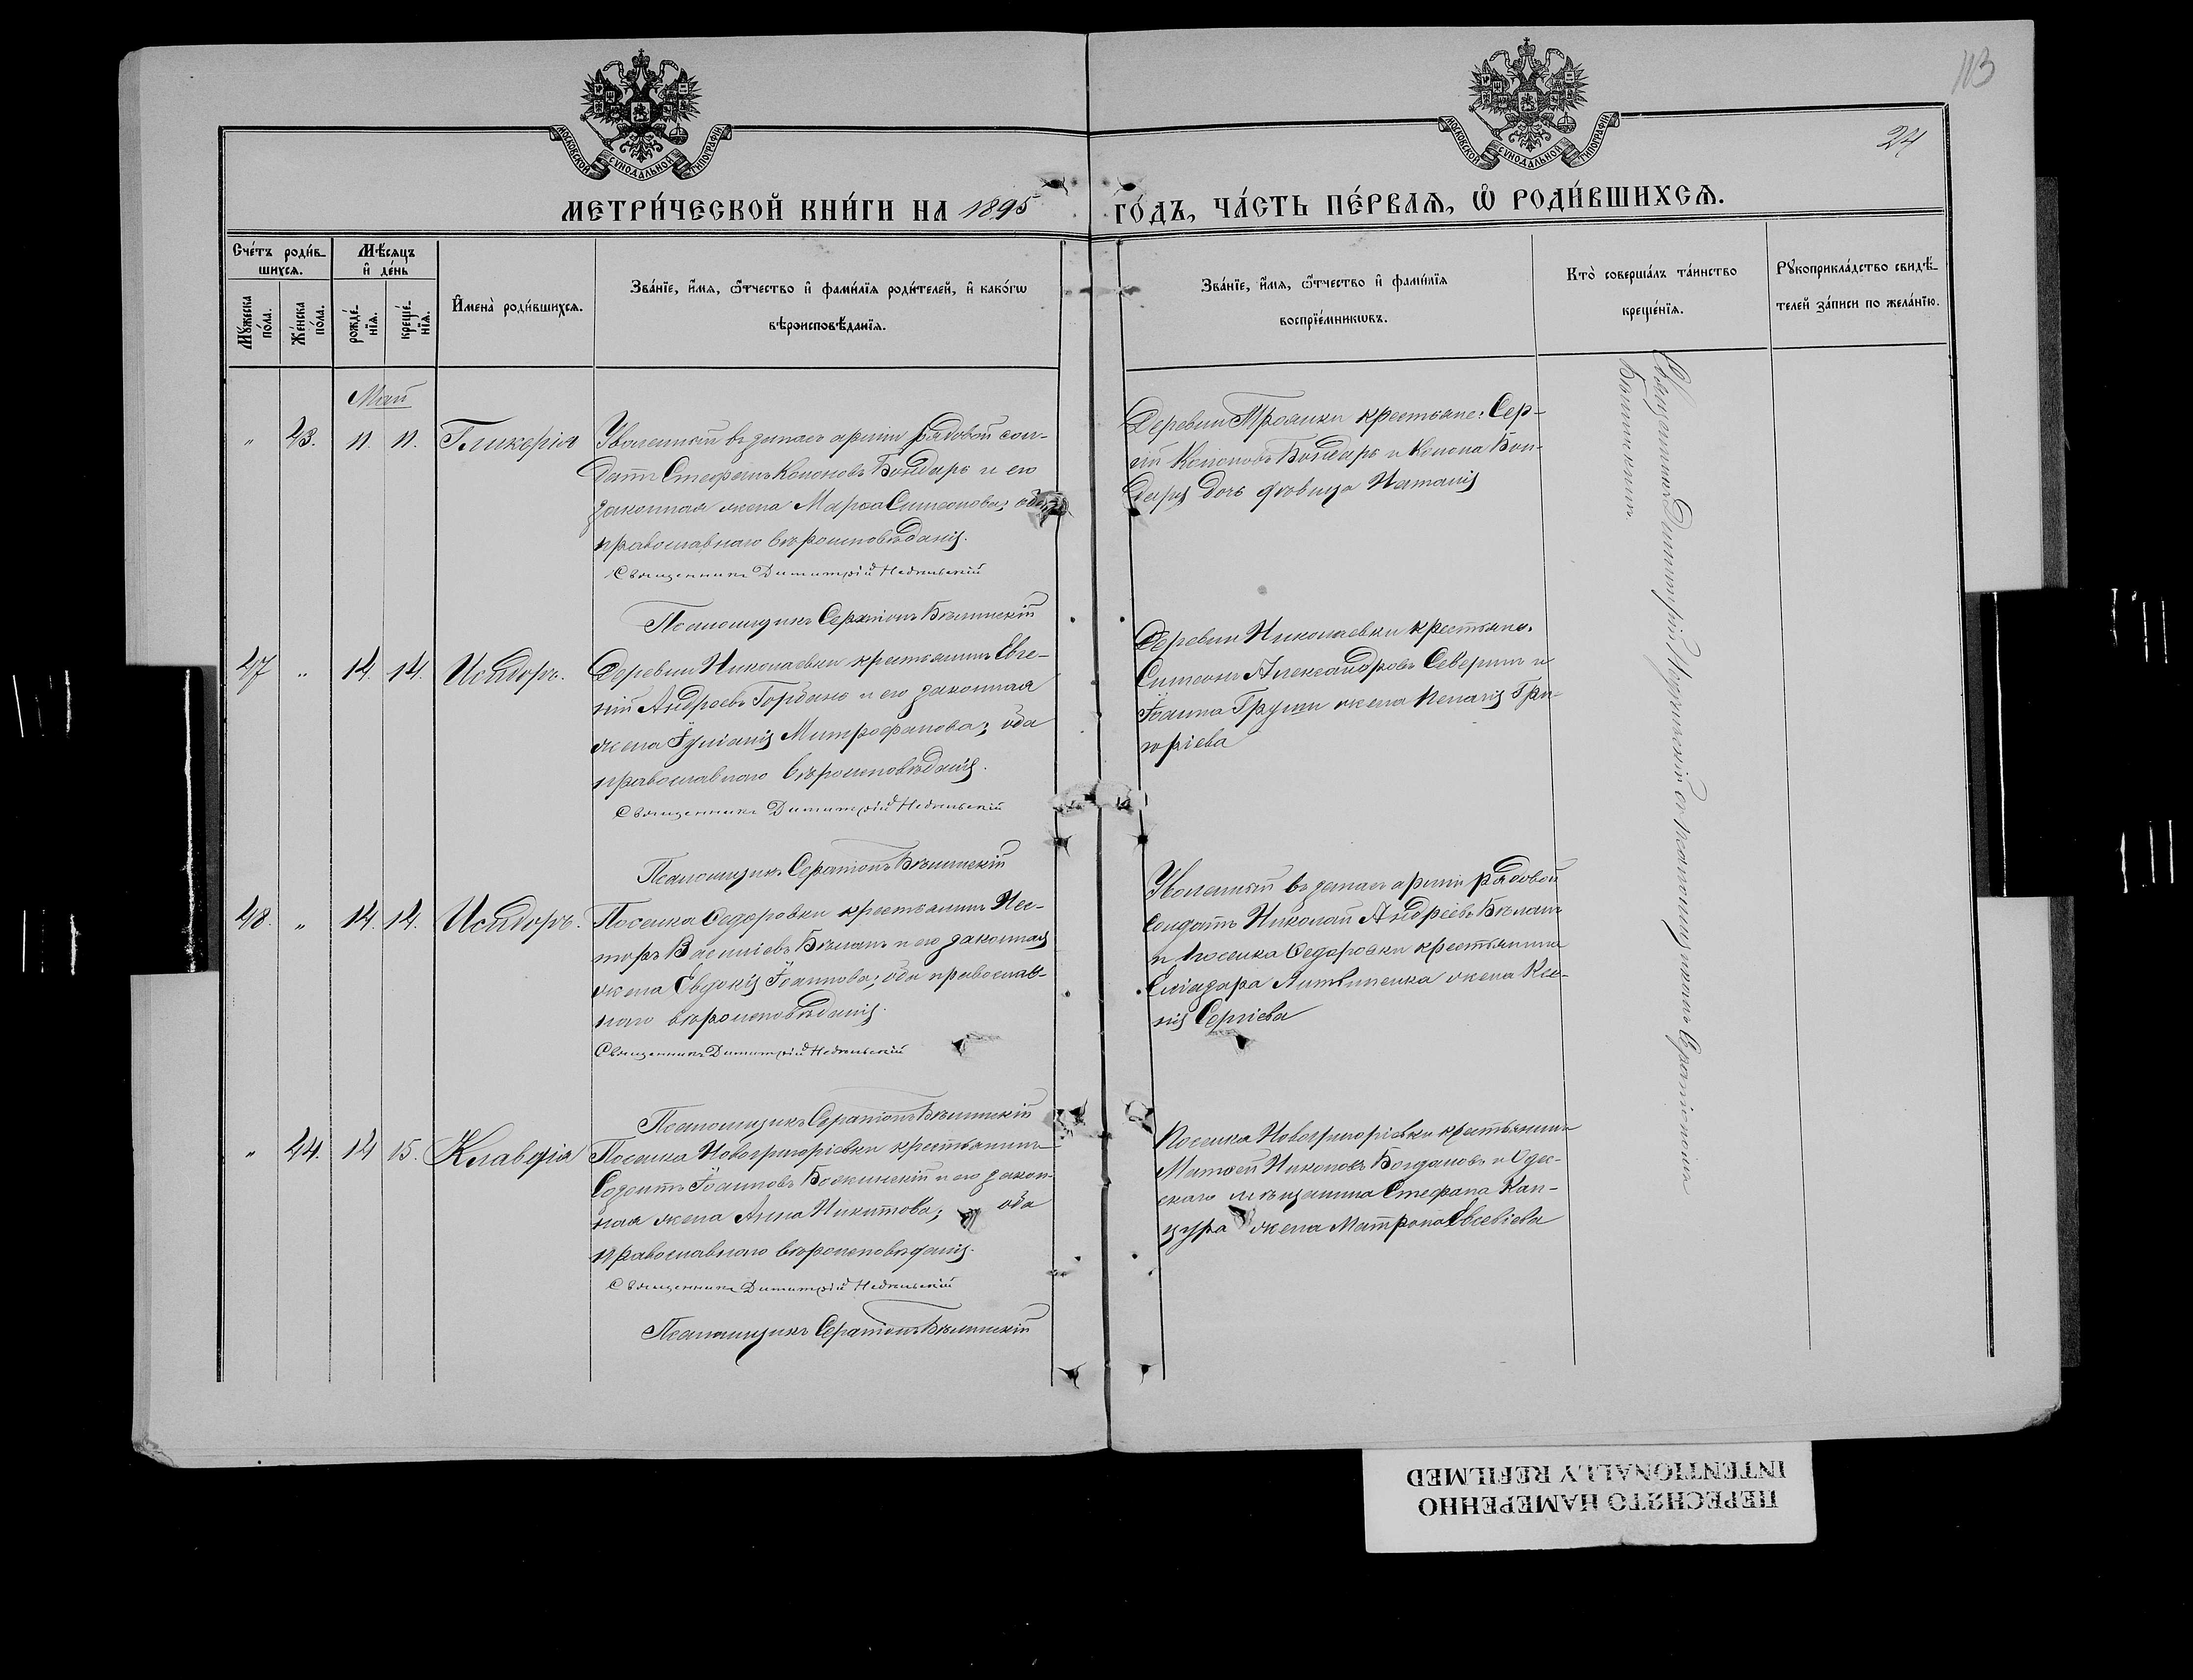 113
24
МОСКОВСКОЙ СУНОДАЛЬНОЙ ТИПОГРАФІИ
МОСКОВСКОЙ СУНОДАЛЬНОЙ ТИПОГРАФІИ
МЕТРИ́ЧЕСКОЙ КНИ́ГИ НА 1895 ГО́ДЪ, ЧА́СТЬ ПЕ́РВАЯ, Ѡ РОДИ́ВШИХСЯ.
Сче́тъ роди́в-
шихся.
Мѣ́сяцъ
и҆ де́нь
Мꙋ́жеска
по́ла.
Же́нска
по́ла.
рожде́-
нїя.
креще́-
нїя.
И҆мена̀ роди́вшихся.
Зва́нїе, и҆́мя, ѻ҆́тчество и҆ фами́лїя роди́телей, и҆ како́гѡ
вѣроисповѣ́данїя.
Зва́нїе, и҆́мя, ѻ҆́тчество и҆ фами́лїя
воспрїе́мникѡвъ.
Кто̀ соверша́лъ та́инство
креще́нїя.
Рꙋкоприкла́дство свидѣ́-
телей за́писи по жела́нїю.
Май
" 43. 11. 11. Гликерія
Уволенный въ запасъ арміи рядовой сол-
датъ Стефанъ Кононовъ Бондарь и его
законная жена Марѳа Симеонова; оба
православнаго вѣроисповѣданія.
Священникъ Димитрій Недзельскій
Псаломщикъ Серапіонъ Бѣлинскій
Деревни Троянки крестьяне: Сер-
гій Кононовъ Бондарь и Конона Бон-
даря дочь дѣвица Наталія
47 " 14. 14. Исидоръ.
Деревни Николаевки крестьянинъ Евге-
ній Андреевъ Горбаню и его законная
жена Іуліанія Митрофанова; оба
православнаго вѣроисповѣданія.
Священникъ Димитрій Недзельскій
Псаломщикъ Серапіонъ Бѣлинскій
Деревни Николаевки крестьяне:
Симеонъ Александровъ Северинъ и
Іоанна Груши жена Пелагія Гри-
горіева
48. " 14. 14. Исидоръ.
Поселка Ѳедоровки крестьянинъ Нес-
торъ Василіевъ Бѣланъ и его законная
жена Евдокія Іоаннова; оба православ-
наго вѣроисповѣданія.
Священникъ Димитрій Недзельскій
Псаломщикъ Серапіонъ Бѣлинскій
Уволенный въ запасъ арміи рядовой
солдатъ Николай Андреевъ Бѣланъ
и поселка Ѳедоровки крестьянина
Еліазара Литвиненка жена Ксе-
нія Сергіева
" 44. 14 15. Клавдія
Поселка Новогригоріевки крестьянинъ
Созонтъ Іоанновъ и его закон-
ная жена Анна Никитова; оба
православнаго вѣроисповѣданія.
Священникъ Димитрій Недзельскій
Псаломщикъ Серапіонъ Бѣлинскій
Поселка Новогригоріевки крестьянинъ
Матѳей Никоновъ Богдановъ и Одес-
скаго мѣщанина Стефана Кан-
цура жена Матрона Евсевіева
Священникъ Димитрій Недзельскій съ псаломщикомъ Серапіономъ
Бѣлинскимъ.
ПЕРЕСНЯТО НАМЕРЕННО
INTENTIONALLY REFILMED